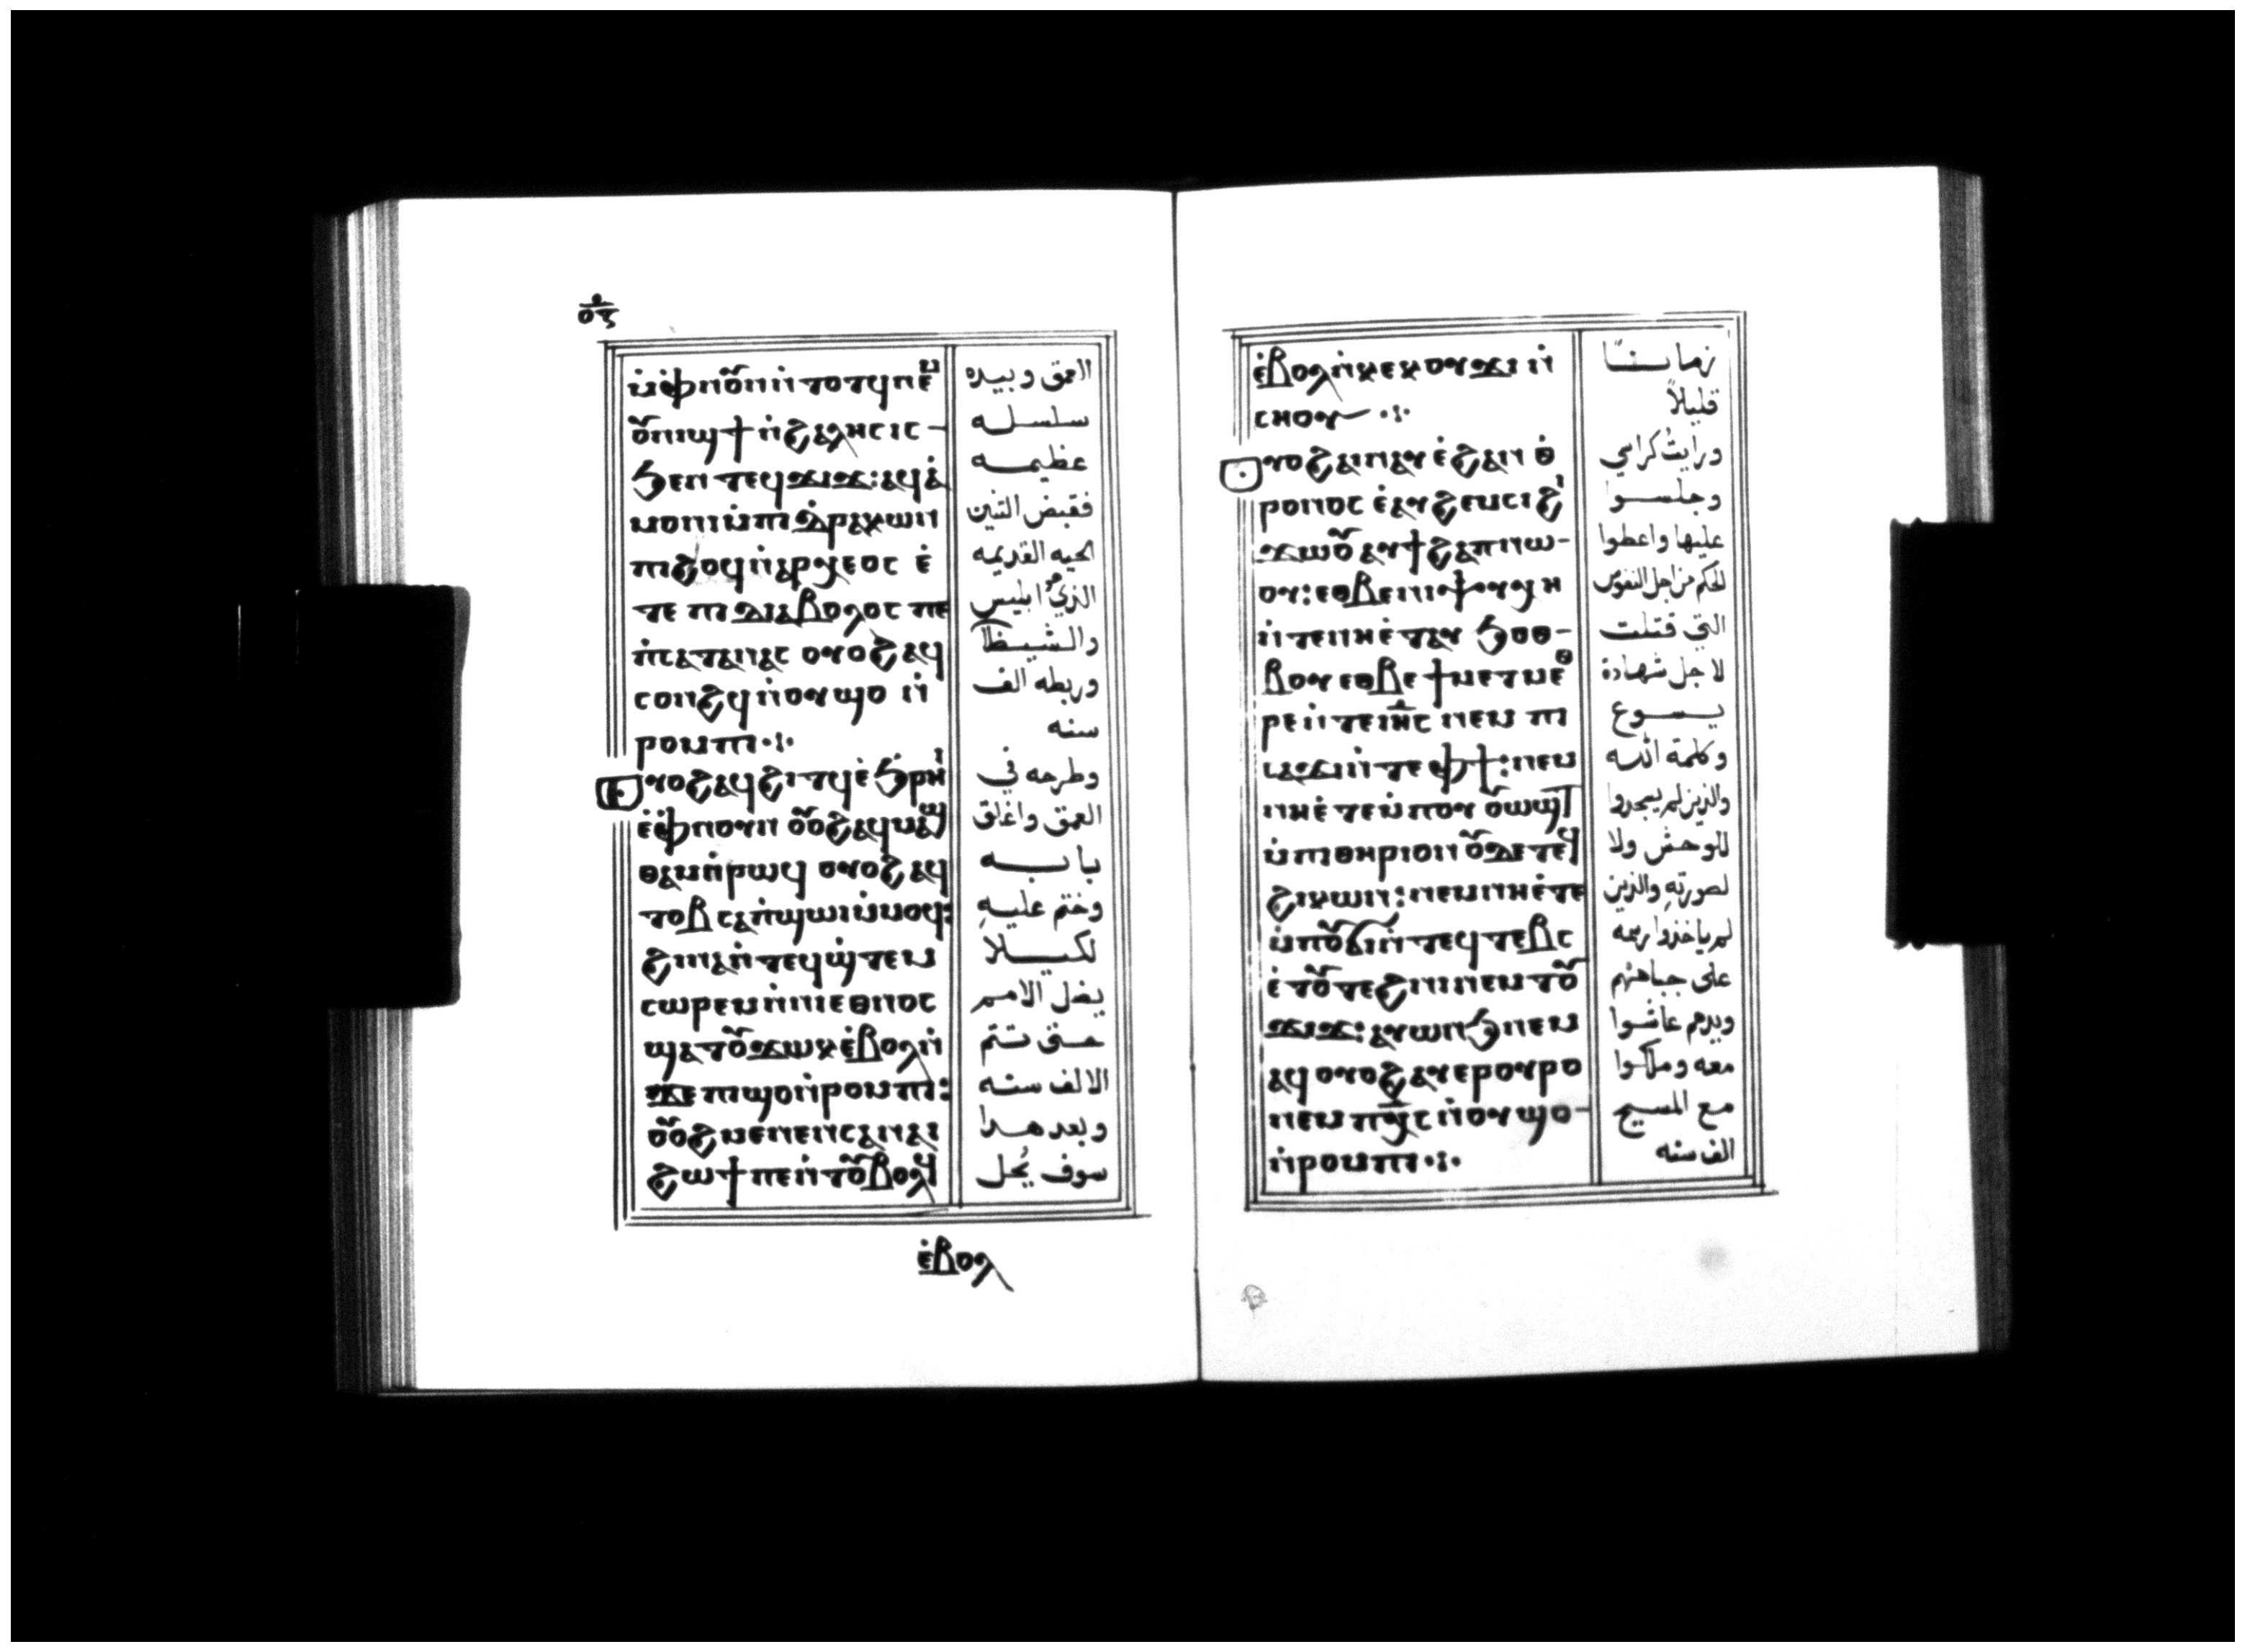 ⲙ̀ⲫⲛⲟⲩⲛ ⲛ̀ⲧⲟⲧϥ ⲛⲉⲙ
ⲟⲩⲛⲓϣϯ ⲛ̀ϩⲁⲗⲏⲥⲓⲥ
ϧⲉⲛ ⲧⲉϥϫⲓϫ: ⲁϥⲁ̀
ⲙⲟⲛⲓ ⲙ̀ⲡⲓⲇⲣⲁⲕⲱⲛ
ⲡⲓϩⲟϥ ⲛ̀ⲁⲣⲭⲉⲟⲥ ⲉ̀
ⲧⲉ ⲡⲓⲇⲓⲁⲃⲟⲗⲟⲥ ⲡⲉ
ⲡ̀ⲥⲁⲧⲁⲛⲁⲥ ⲟⲩⲟϩ ⲁϥ
ⲥⲟⲛϩϥ ⲛ̀ⲟⲩϣⲟ ⲛ̀
ⲣⲟⲙⲡⲓ·:·
ⲟⲩⲟϩ ⲁϥϩⲓⲧϥ ⲉ̀ϧⲣⲏⲓ̀
ⲉ̀ⲫⲛⲟⲩⲛ ⲟⲩⲟϩ ⲁϥⲙⲁϣ
ⲑⲁⲙ ⲛ̀ⲣⲱϥ ⲟⲩⲟϩ ⲁϥ
ⲧⲟⲃⲥ ⲛ̀ϣⲱⲓ ⲙ̀ⲙⲟϥ:
ϩⲓⲛⲁ ⲛ̀ⲧⲉϥϣⲧⲉⲙ
ⲥⲱⲣⲉⲙ ⲛ̀ⲛⲓⲉⲑⲛⲟⲥ
ϣⲁⲧⲟⲩϫⲱⲕ ⲉ̀ⲃⲟⲗ ⲛ̀
ϫⲉ ⲡⲓϣⲟ ⲛ̀ⲣⲟⲙⲡⲓ:
ⲟⲩⲟϩ ⲙⲉⲛⲉⲛⲥⲁ ⲛⲁⲓ
ϩⲱϯ ⲡⲉ ⲛ̀ⲧⲟⲩⲃⲟⲗϥ
ⲉ̀ⲃⲟⲗ
العمق وبيده
سلسله
عظيمه
فقبض التنين
الحيه القديمه
الذي هو ابليس
والشيطان
وربطه الف
سنه
وطرحه في
العمق واغلق
بابه
وختم عليهِ
لكيلا
يضل الامم
حتى تتم
الالف سنه
وبعد هدا
سوف يُحل
ⲉ̀ⲃⲟⲗ ⲛ̀ⲕⲉⲕⲟⲩϫⲓ ⲛ̀
ⲥⲏⲟⲩ ·:·
ⲟⲩⲟϩ ⲁⲓⲛⲁⲩ ⲉ̀ϩⲁⲛⲑ̀
ⲣⲟⲛⲟⲥ ⲉ̀ⲁⲩϩⲉⲙⲥⲓ ϩⲓ̀
ϫⲱⲟⲩ ⲁⲩϯϩⲁⲡ ⲛⲱ
ⲟⲩ: ⲉⲑⲃⲉ ⲛⲓⲯⲩⲭⲏ
ⲛ̀ⲧⲉ ⲛⲏⲉ̀ⲧⲁⲩ ϧⲟⲑ
ⲃⲟⲩ ⲉⲑⲃⲉ ϯⲙⲉⲧⲙⲉⲑ
ⲣⲉ ⲛ̀ⲧⲉ ⲓⲏⲥ ⲛⲉⲙ ⲡⲓ
ⲥⲁϫⲓ ⲛ̀ⲧⲉ ⲫϯ: ⲛⲉⲙ
ⲛⲏⲉ̀ⲧⲉ ⲙ̀ⲡⲟⲩ ⲟⲩⲱϣⲧ
ⲙ̀ⲡⲓⲑⲏⲣⲓⲟⲛ ⲟⲩⲇⲉ ⲧⲉϥ
ϩⲓⲕⲱⲛ: ⲛⲉⲙ ⲛⲏⲉ̀ⲧⲉ
ⲙ̀ⲡⲟⲩϭⲓ ⲛ̀ⲧⲉϥⲧⲉⲃⲥ
ⲉ̀ⲧⲟⲩⲧⲉϩⲛⲓ ⲛⲉⲙ ⲧⲟⲩ
ϫⲓϫ: ⲁⲩⲱⲛϧ ⲛⲉⲙ
ⲁϥ ⲟⲩⲟϩ ⲁⲩⲉⲣⲟⲩⲣⲟ
ⲛⲉⲙ ⲡⲭⲥ ⲛ̀ⲟⲩϣⲟ
ⲛ̀ⲣⲟⲙⲡⲓ·:·
زماناً
قليلاً
ورايت كراسي
وجلسوا
عليها واعطوا
الحكم من اجل النفوس
التي قتلت
لاجل شهادة
يسوع
وكلمة الله
والذين لم يسجدوا
للوحش ولا
لصورتهِ والذين
لم ياخذوا رسمه
على جباههم
ويدهم عاشوا
معه وملكوا
مع المسيح
الف سنه